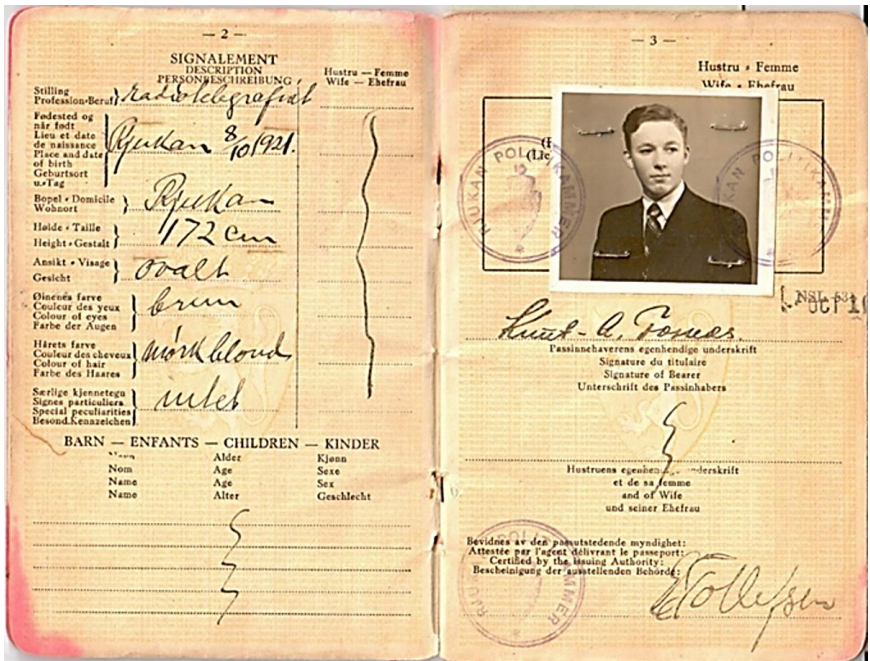 — 2 —
SIGNALEMENT
DESCRIPTION
PERSONBESCHREIBUNG
Hustru — Femme
Wife — Ehefrau
Stilling
Profession-Beruf} radiotelegrafist
Fødested og
når født
Lieu et date
de naissance
Place and date
of birth
Geburtsort
u. Tag
Rjukan 8/10 1921.
Bopel - Domicile
Wohnort } Rjukan
Høide - Taille
Height - Gestalt } 172 cm
Ansikt - Visage
Gesicht } ovalt
Øinenes farve
Couleur des yeux
Colour of eyes
Farbe der Augen
brun
Hårets farve
Couleur des cheveux
Colour of hair
Farbe des Haares
mørk blond
Særlige kjennetegn
Signes particuliers
Special peculiarities
Besond. Kennzeichen
intet
BARN — ENFANTS — CHILDREN — KINDER
Navn Alder Kjønn
Nom Age Sexe
Name Age Sex
Name Alter Geschlecht
— 3 —
Hustru - Femme
Wife - Ehefrau
RJUKAN POLITIKAMMER
Knut - A.
Passinnehaverens egenhendige underskrift
Signature du titulaire
Signature of Bearer
Unterschrift des Passinhabers
Hustruens egenhendige underskrift
et de sa femme
and of Wife
und seiner Ehefrau
Bevidnes av den passutstedende myndighet:
Attestée par l'agent délivrant le passeport:
Certified by the Issuing Authority:
Bescheinigung der ausstellenden Behörde:
Tollefsen